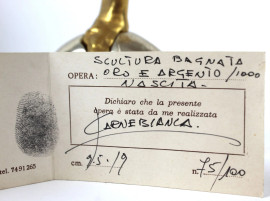 SCULTURA BAGNATA
OPERA: ORO E ARGENTO /1000
NASCITA.
Dichiaro che la presente
opera è stata da me realizzata
cm.
n. 75/100
tel. 7491265